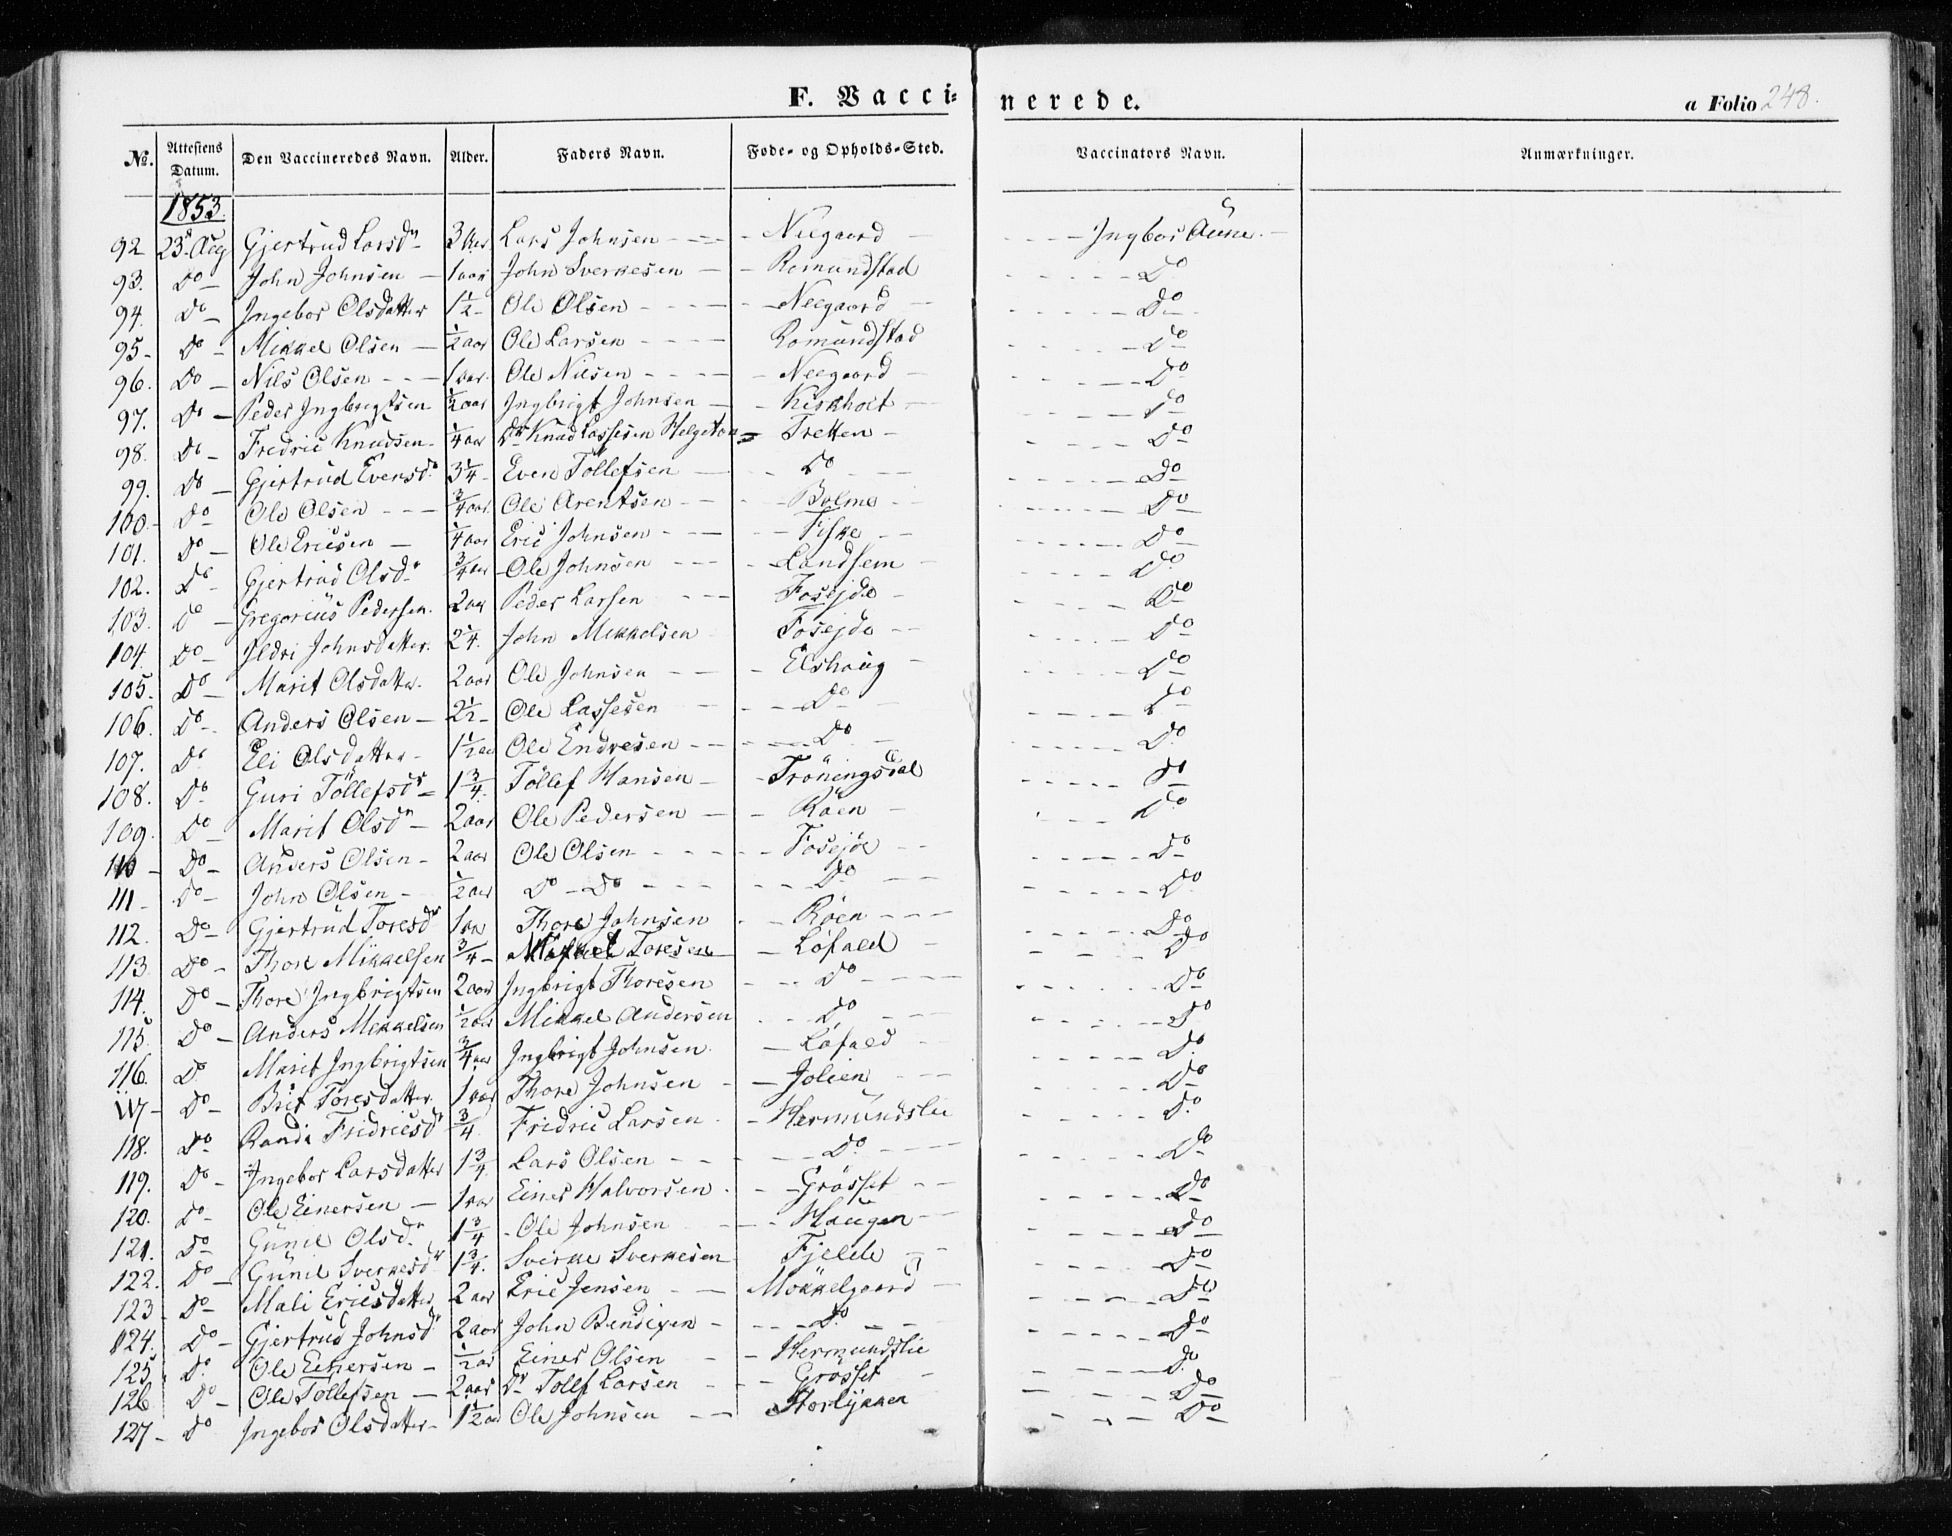 F. Vacci= nerede. a Folio 248.
No. Attestens Datum. Den Vaccineredes Navn. Alder. Faders Navn. Føde- og Opholds-Sted. Vaccinators Navn. Anmærkninger.
1853.
92 23de Aug Gjertrud Larsdr 3 Aar Lars Johnsen Neegaard Ingbor Aune.
93. Do John Johnsen 1 aar John Sverkesen Romundstad Do
94. Do Ingebor Olsdatter 1½ Ole Olsen Neegaard Do
95 Do Mikkel Olsen ½ aar Ole Larsen Romundstad Do
96. Do Nils Olsen 1 aar. Ole Nilsen Neegaard Do
97. Do Peder Ingbrigtsen ½ aar Ingbrigt Johnsen Kirkholt Do
98. Do Fredric Knudsen ¼ aar Knud Lassesen Helgeton Tretten Do
99. Do Gjertrud Evensd. 3¼ Even Tollefsen Do Do
100. Do Ole Olsen ¾ aar. Ole Arentsen Bolme Do
101. Do Ole Ericsen ¼ aar Eric Johnsen Fiske Do
102. Do Gjertrud Olsdr ¾ aar Ole Johnsen Landsem Do
103. Do Gregorius Pedersen. 2 aar Peder Larsen Fosejde Do
104. Do Ildri Johnsdatter. 2¼. John Mikkelsen Fosejde Do
105. Do Marit Olsdatter. 2 aar Ole Johnsen Elshaug Do
106. Do Anders Olsen 2½ Ole Lassesen Do Do
107. Do Eli Olsdatter 1½ aar Ole Endresen Do Do
108. Do Guri Töllefsdr 1¾. Töllef Hansen Tröningsdal Do
109. Do Marit Olsdr 2 aar Ole Pedersen Röen Do
110 Do Anders Olsen 2 aar Ole Olsen Fosejde Do
111 Do John Olsen ½ aar Do Do Do Do
112. Do Gjertrud Toresdr 1 aar Thore Johnsen Röen Do
113 Do Thore Mikkelsen ¾ Mikkel Toresen Löfald Do
114. Do Thore Ingbrigtsen 2 aar Ingbrigt Thoresen Do Do
115. Do Anders Mikkelsen ½ aar Mikkel Andersen Do Do
116. Do Marit Ingbrigtsen ¾ aar Ingbrigt Johnsen. Löfald Do
117 Do Brit Toresdatter. 1 aar Thore Johnsen Jolien Do
118. Do Randi Fridricsdr ¾. Fridric Larsen Hermundslie Do
119. Do Ingebor Larsdatter 1¾. Lars Olsen Do Do
120. Do Ole Einersen 1 aar Einer Halvorsen Grösset Do
121. Do Gunil Olsdr 1¾ Ole Johnsen Haugen Do
122. Do Gunil Sverkesdr 1¾. Sverke Sverkesen Fjelde Do
123 Do Mali Ericsdatter 2 aar Eric Jensen Mökkelgaard Do
124. Do Gjertrud Johnsdr 2 aar John Bendixen Do Do
125. Do Ole Einersen ½ aar Einer Olsen Hermundslie Do
126 Do Ole Tollefsen 2 aar Tollf Larsen Grösset Do
127 Do Ingebor Olsdatter 1½ aar Ole Johnsen Storlykken Do